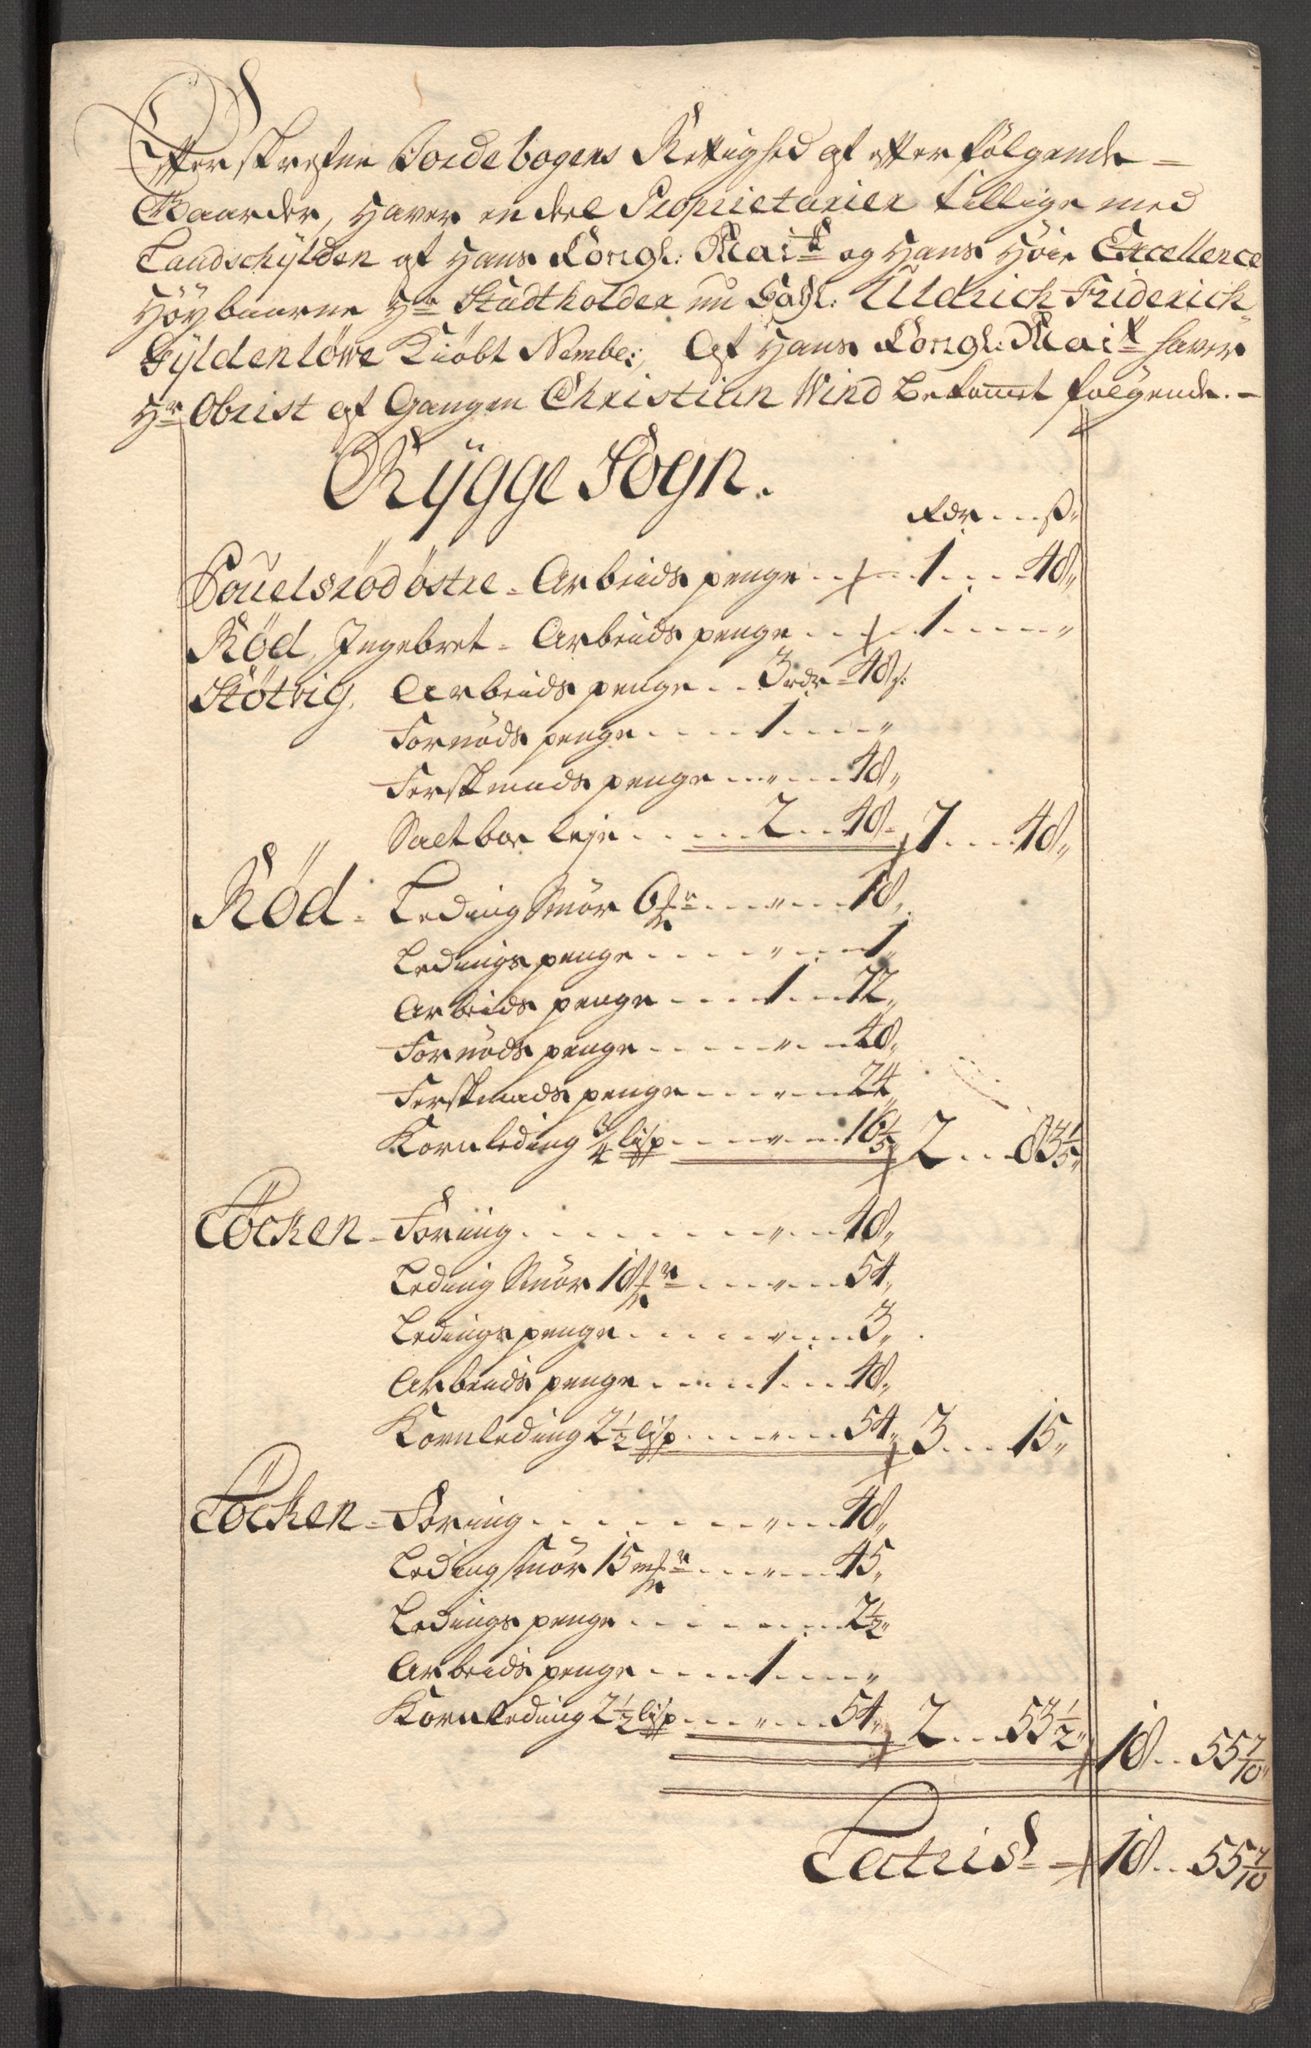 Efterskrefne Jordebogens Rettighed af efterfølgende =
Gaarder, Haver en deel Proprietarier tillige med
Landschÿlden af Hans Kongl: Maitt og Hans Høie Excellence
Høÿbaarne Hr Stadtholder nu Sahl: Uldrich Friderich
Gÿldenløwe Kiøbt Nembl: Af Hans Kongl: Maitt haver
Hr Obrist af Gangen Christian Wind bekomet følgende. -
Rÿgge Sogn.
Rdr ... ß
Pouelsrød østre - Arbeids penge ... 1 ... 48"
Rød, Ingebret - Arbeids penge ... 1 ... "
Støtvig, Arbeids penge ... 3 rdr - 48 ß:
Fornøds penge ... 1 ... "
Ferskmads penge ... " ... 48"
Saltbor leje ... 2 ... 48" 7 ... 48"
Rød - Leding Smør 6 ... " ... 18"
Ledings penge ... " ... 1"
Arbeids penge ... 1 ... 72"
Fornøds penge ... " ... 48"
Ferskmads penge ... " ... 24"
Kornleding 3/4 lisp ... " ... 16 1/5 2 ... 83 1/5"
Løcken - Foring ... " ... 48"
Leding Smør 18 ... " ... 54"
Ledings penge ... " ... 3"
Arbeids penge ... 1 ... 48"
Kornleding 2 1/2 lisp ... " ... 54" 3 ... 15"
Løcken - Foring ... " ... 48"
Leding smør 15 ... " ... 45"
Ledings penge ... 2 1/2"
Arbeids penge ... 1 ... "
Kornleding 2 1/2 lisp ... " ... 54" 2 ... 53 1/2" 18 ... 55 7/10"
Lateris - 18 ... 55 7/10